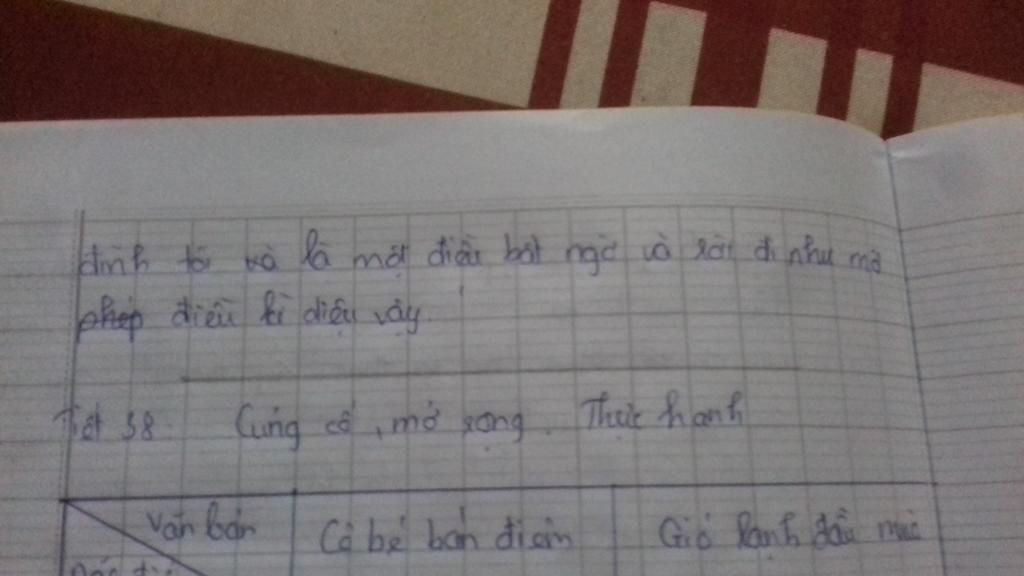 đình tôi và là một điều bất ngờ và rời đi như mở
phép điều kì diệu vậy.
Tiết 38. Củng cố, mở rộng. Thực hành
Văn bản Cô bé bán diêm Gió lạnh đầu mùa